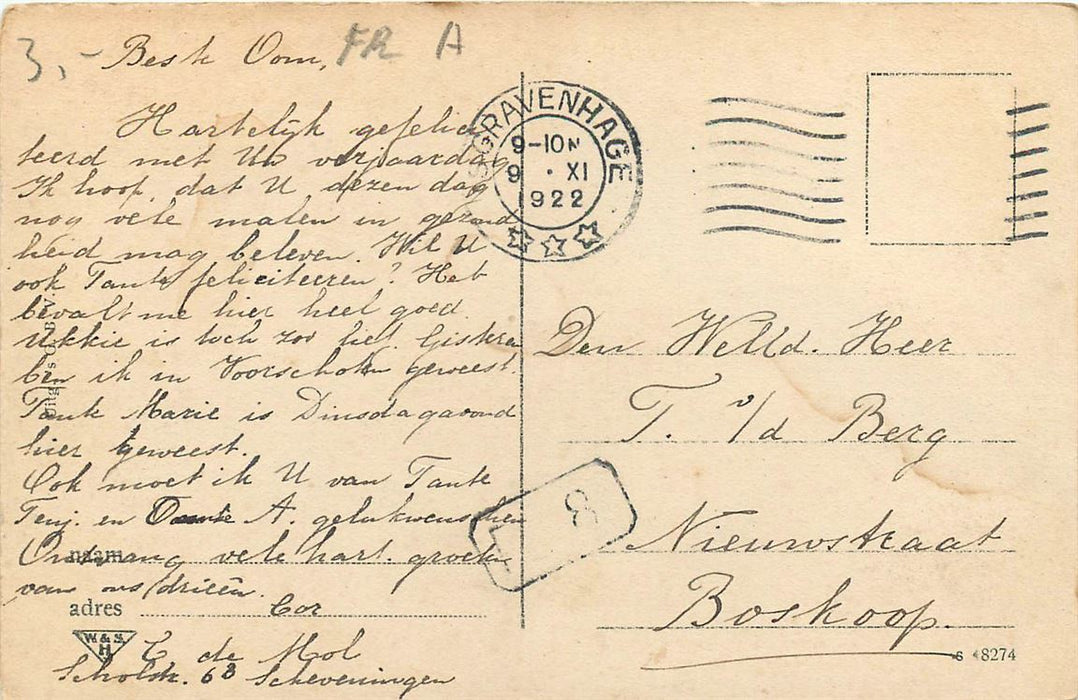 3,- Beste Oom, FR A
Hartelijk gefelici
teerd met Uw verjaardag
Ik hoop, dat U dezen dag
nog vele malen in gezond
heid mag beleven. Wil U
ook Tante feliciteeren? Het
bevalt me hier heel goed.
Ukkie is toch zoo lief. Gisteren
ben ik in Voorschoten geweest.
Tante Marie is Dinsdagavond
hier geweest.
Ook moet ik U van Tante
en A. gelukwenschen
Ontvang vele hart. groeten
van ons drieën.
Cor
naam
adres
W. & S.
H
C de Mol
68 Scheveningen
'SGRAVENHAGE
9-10N
9 · XI
1922
Den Weled. Heer
T. v/d Berg
Nieuwstraat
Boskoop.
8274